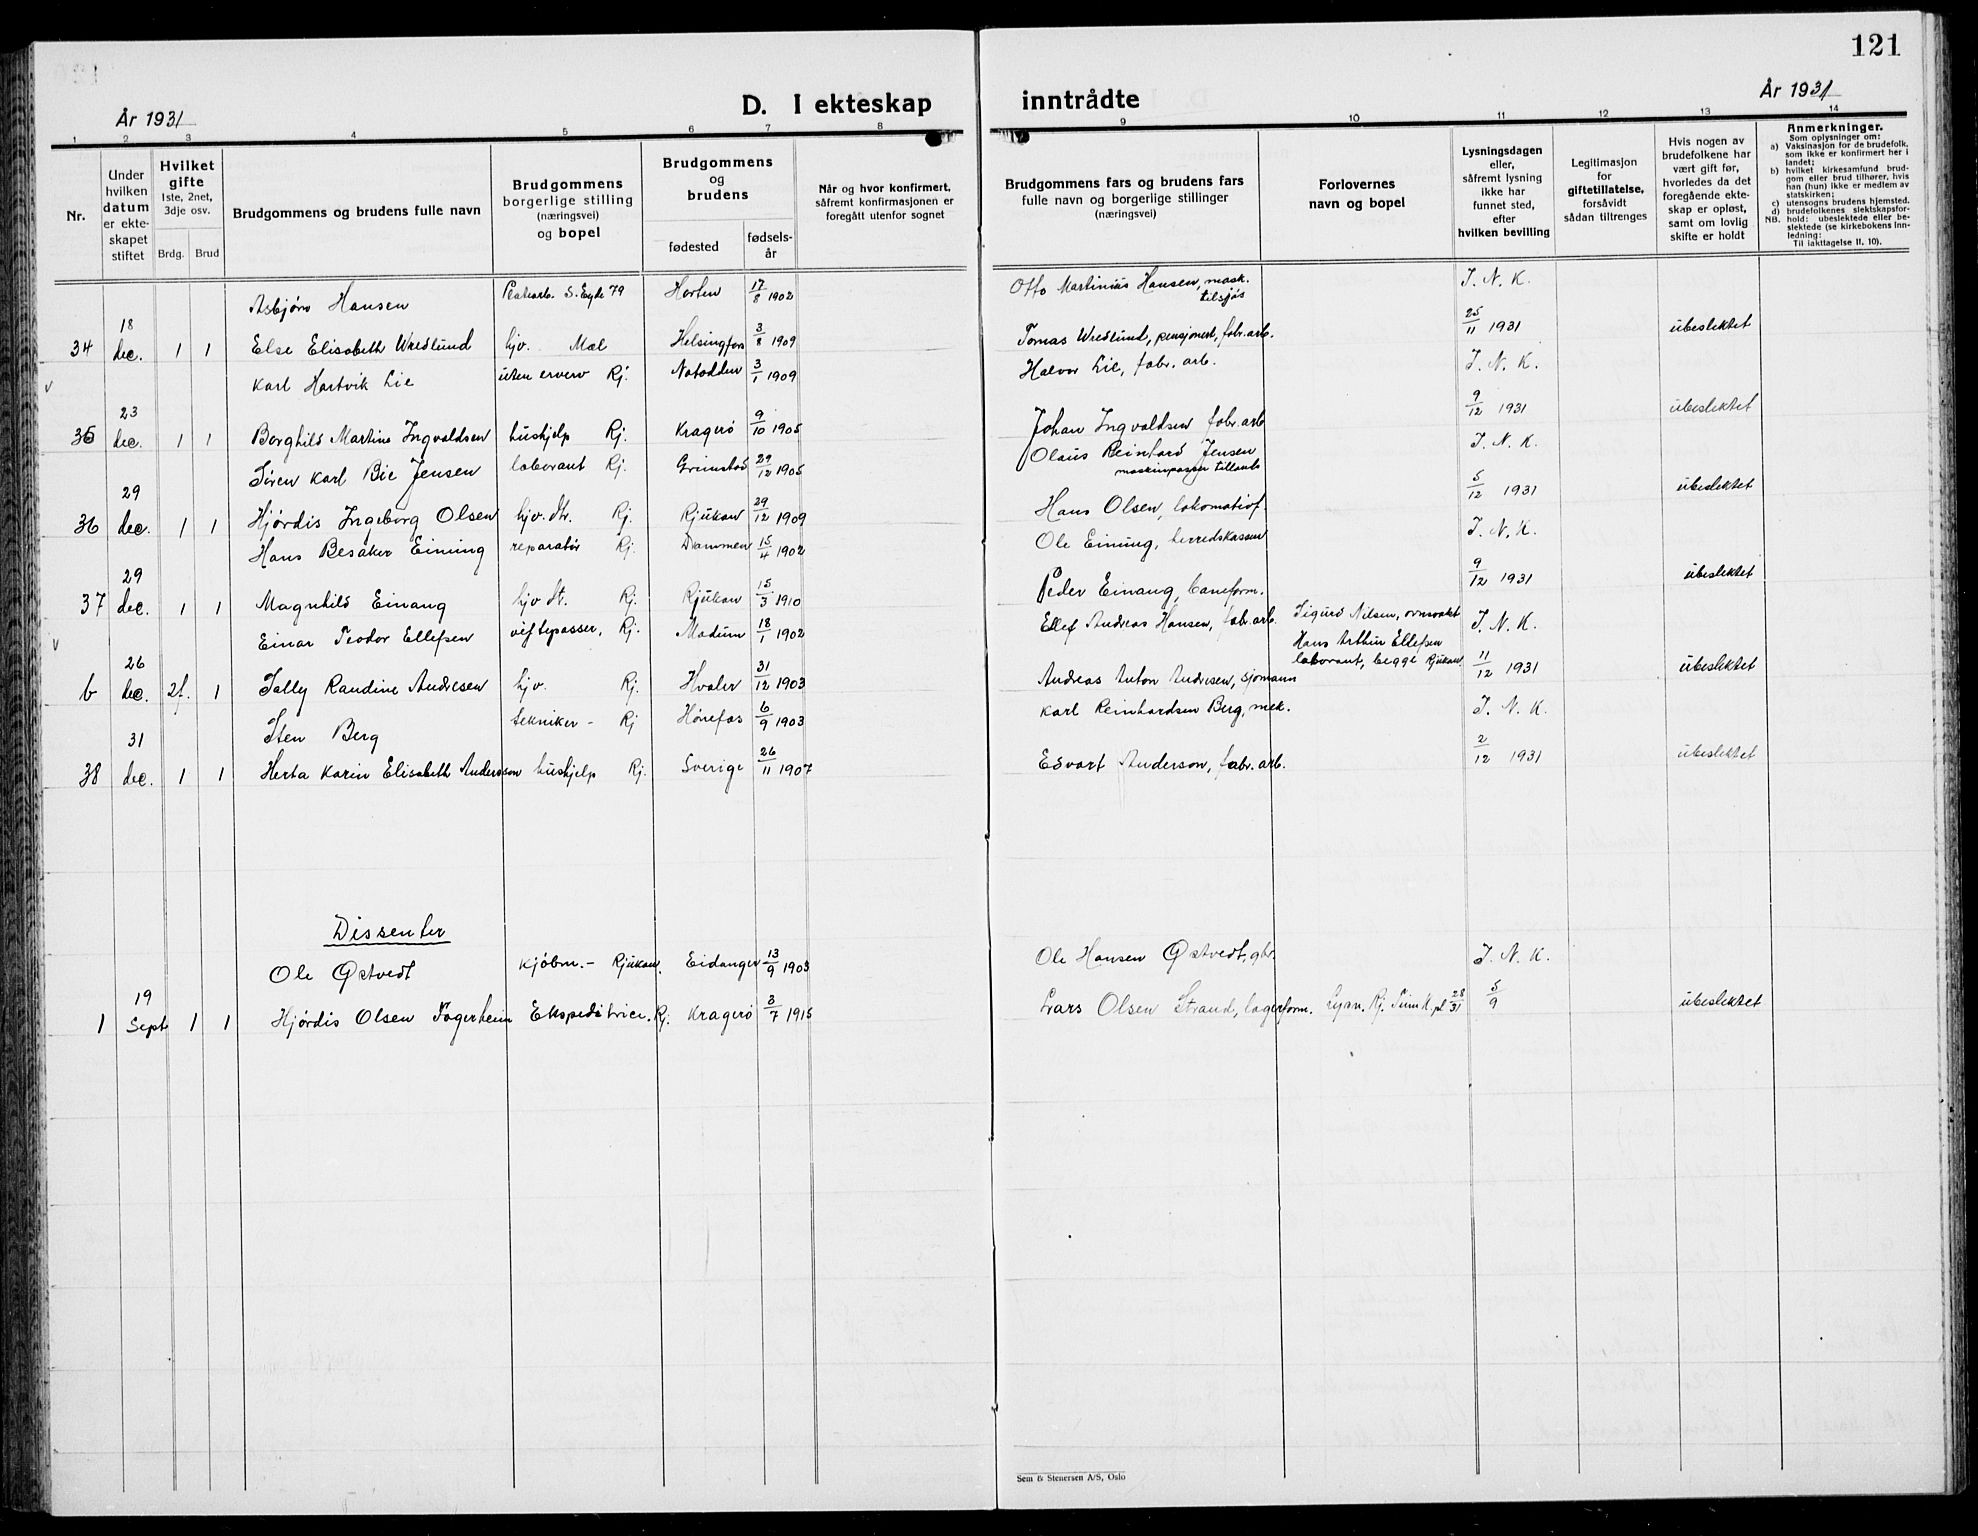 121
År 1931
D. I ekteskap
inntrådte
År 1931
1 2 3 4 5 6 7 8
9 10 11 12 13 14
Nr.
Under hvilken datum er ekteskapet stiftet
Hvilket gifte
1ste, 2net, 3dje osv.
Brdg. Brud
Brudgommens og brudens fulle navn
Brudgommens borgerlige stilling (næringsvei) og bopel
Brudgommens og brudens
fødested
fødselsår
Når og hvor konfirmert, såfremt konfirmasjonen er foregått utenfor sognet
Brudgommens fars og brudens fars fulle navn og borgerlige stillinger (næringsvei)
Forlovernes navn og bopel
Lysningsdagen eller, såfremt lysning ikke har funnet sted, efter hvilken bevilling
Legitimasjon for giftetillatelse, forsåvidt sådan tiltrenges
Hvis nogen av brudefolkene har vært gift før, hvorledes da det foregående ekteskap er opløst, samt om lovlig skifte er holdt
Anmerkninger.
Som oplysninger om:
a) Vaksinasjon for de brudefolk, som ikke er konfirmert her i landet;
b) hvilket kirkesamfund brudgom eller brud tilhører, hvis han (hun) ikke er medlem av statskirken;
c) utensogns brudens hjemsted.
d) brudefolkenes slektskapsforhold: ubeslektede eller beslektede (se kirkebokens innledning:
NB.
Til iakttagelse II. 10).
Asbjørn Hansen S. Eyde 79 Horten 17/8 1902 Otto Martinius Hansen, mask. tilsjøs I. N. K.
34 18 dec. 1 1 Else Elisabeth Wredlund hjv. Mæl Helsingfors 3/8 1909 Tomas Wredlund, pensjonert, fabr. arb. 25/11 1931 ubeslektet
v Karl Hartvik Lie uten erverv Rj. Notodden 3/1 1909 Halvor Lie, fabr. arb. I. N. K.
35 23 dec. 1 1 Borghild Martine Ingvaldsen hushjelp Rj. Kragerø 9/10 1905 Johan Ingvaldsen fabr. arb 9/12 1931 ubeslektet
Søren Karl Bie Jensen laborant Rj. Grimstad 29/12 1905 Olaus Reinhard Jensen maskinpasser tillands I. N. K.
36 29 dec. 1 1 Hjørdis Ingeborg Olsen hjv. dtr. Rj. Rjukan 29/12 1909 Hans Olsen, lokomotivf. 5/12 1931 ubeslektet
Hans Besaker Eining reparatør Rj. Drammen 15/4 1902 Ole Eining, herredskasser I. N. K.
37 29 dec. 1 1 Magnhild Einang hjv. dt. Rj. Rjukan 15/3 1910 Peder Einang, baneform. 9/12 1931 ubeslektet
v Einar Teodor Ellefsen viftepasser, Rj. Modum 18/1 1902 Ellef Andreas Hansen, fabr. arb. Sigurd Nilsen, ovnsvakt Hans Arthur Ellefsen laborant, begge Rjukan I. N. K.
b 26 dec. 2f. 1 Tally Randine Andresen hjv. Rj. Hvaler 31/12 1903 Andreas Anton Andresen, sjømann 11/12 1931 ubeslektet
Sten Berg tekniker - Rj Hønefos 6/9 1903 Karl Reinhardsen Berg, mek. I. N. K.
38 31 dec. 1 1 Herta Karin Elisabeth Andersson hushjelp Rj. Sverige 26/11 1907 Edvart Anderson, fabr. arb. 2/12 1931 ubeslektet
Dissenter
Ole Østvedt kjøbm. - Rjukan. Eidanger 13/9 1903 Ole Hansen Østvedt, gbr. I. N. K.
1 19 Sept 1 1 Hjørdis Olsen Fagerheim Ekspeditrice. Rj. Kragerø 3/7 1915 Lars Olsen Strand, lagerform. 28/31 5/9 ubeslektet
Sem & Stenersen A/S, Oslo